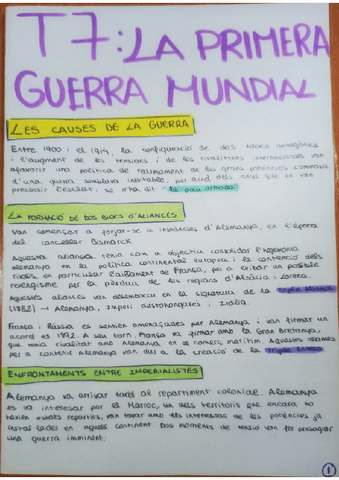 T7: LA PRIMERA
GUERRA MUNDIAL
LES CAUSES DE LA GUERRA
Entre 1900 i el 1914, la configuració de dos blocs antagònics
i l'augment de les tensions i de les rivalitats internacionals van
afavorir una política de rearmament de les grans potències. L'amenaça
d'una guerra semblava inevitable, per això dels anys que van
precedir l'esclat, se n'ha dit "la pau armada"
LA FORMACIÓ DE DOS BLOCS D'ALIANCES
Van començar a forjar-se a instàncies d'Alemanya, en l'època
del canceller Bismarck.
Aquesta aliança, tenia com a objectiu consolidar l'hegemonia
alemanya en la política continental europea i la contenció dels
rivals, en particular l'aïllament de França, per a evitar un possible
revengisme per la pèrdua de les regions d'Alsàcia i Lorena.
Aquestes aliances van desembocar en la signatura de la Triple Aliança
(1882) → Alemanya, Imperi austrohongarès i Itàlia.
França i Rússia es sentien amenaçades per Alemanya i van firmar un
acord el 1892. A seu torn, França va firmar amb la Gran Bretanya,
que tenia rivalitat amb Alemanya, en el comerç marítim. Aquestes aliances
per a contenir Alemanya van dur a la creació de la Triple Entesa.
ENFRONTAMENTS ENTRE IMPERIALISTES
Alemanya va arribar tard al repartiment colonial. Alemanya
es va interesar por el Marroc, un dels territoris que encara no
havien estat repartits, van topar amb els interessos de les potències ja
instal·lades en aquell continent. Dos moments de tensió van fer presagiar
una guerra imminent.
1